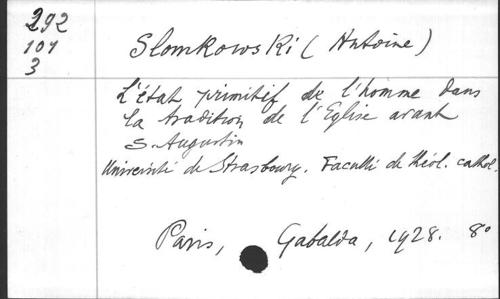 292
101
3
Slomkowski (Antoine)
L'état primitif de l'homme dans
la tradition de l'Eglise avant
S. Augustin
Université de Strasbourg. Faculté de théol. cathol.
Paris, Gabalda, 1928. 8°